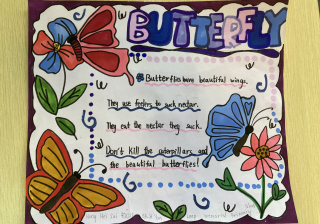 BUTTERFLY
Butterflies have beautiful wings.
They use feelers to suck nectar.
They eat the nectar they suck.
Don't kill the caterpillars and
the beautiful butterflies!